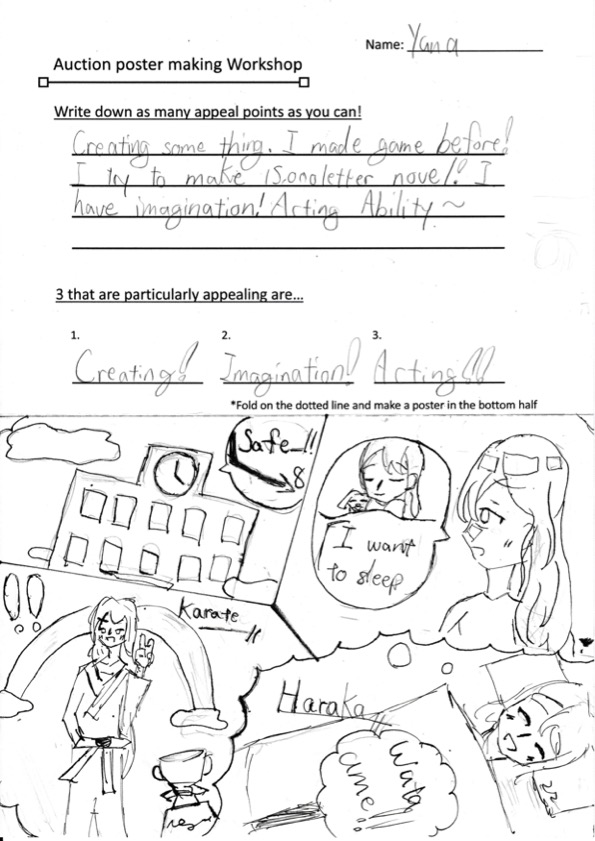 Name: Yana
Auction poster making Workshop
Write down as many appeal points as you can!
Creating some thing. I made game before!
I try to make 15.000letter novel! I
have imagination! Acting Ability~
3 that are particularly appealing are...
1. 2. 3.
Creating! Imagination! Acting!!!
*Fold on the dotted line and make a poster in the bottom half
Safe!!
I want
to sleep
!!
Karate
Haraka